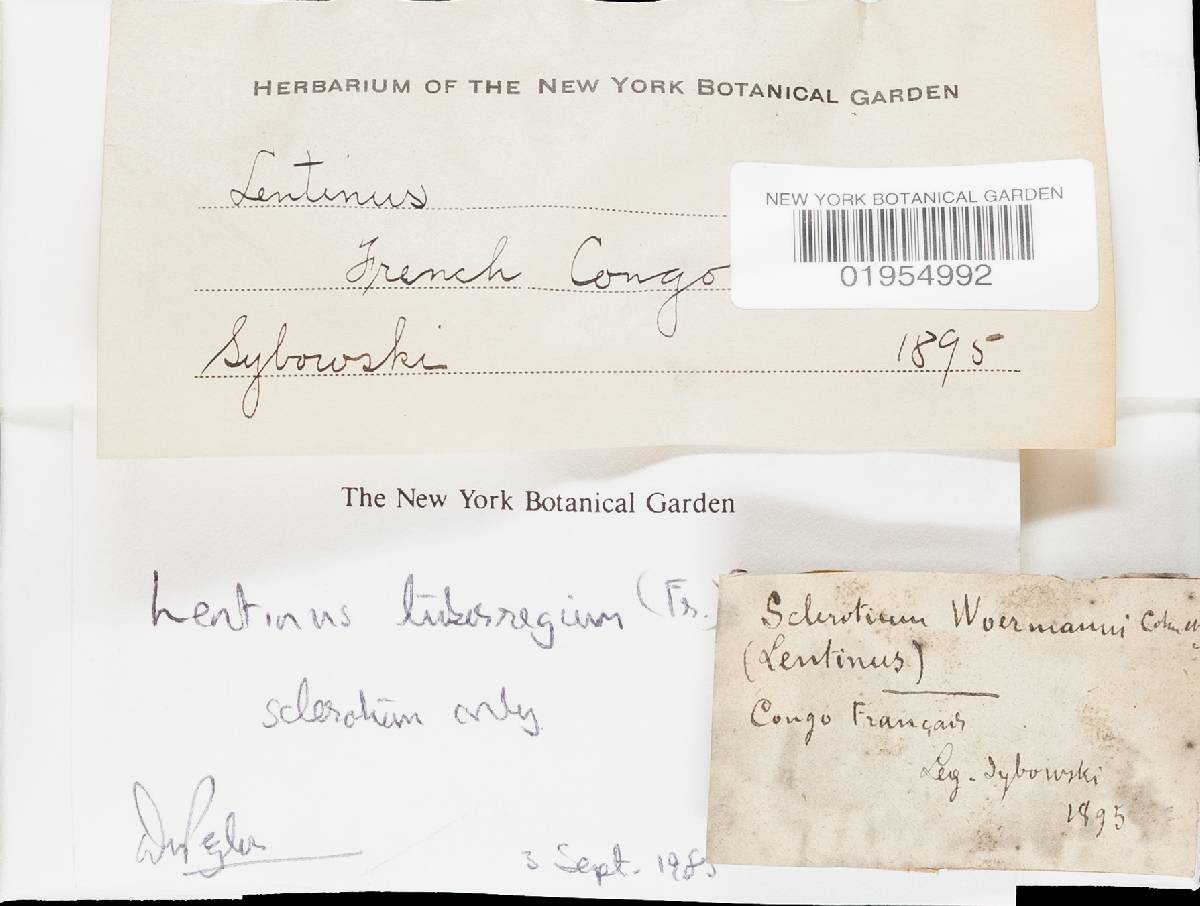 HERBARIUM OF THE NEW YORK BOTANICAL GARDEN
Lentinus
French Congo
Sybowski 1895
NEW YORK BOTANICAL GARDEN
01954992
The New York Botanical Garden
Lentinus tuberregium (Fr.)
sclerotium only
DNPegler
3 Sept. 198
Sclerotium Woermanni Cohn
(Lentinus)
Congo Français
Leg. Dybowski
1895